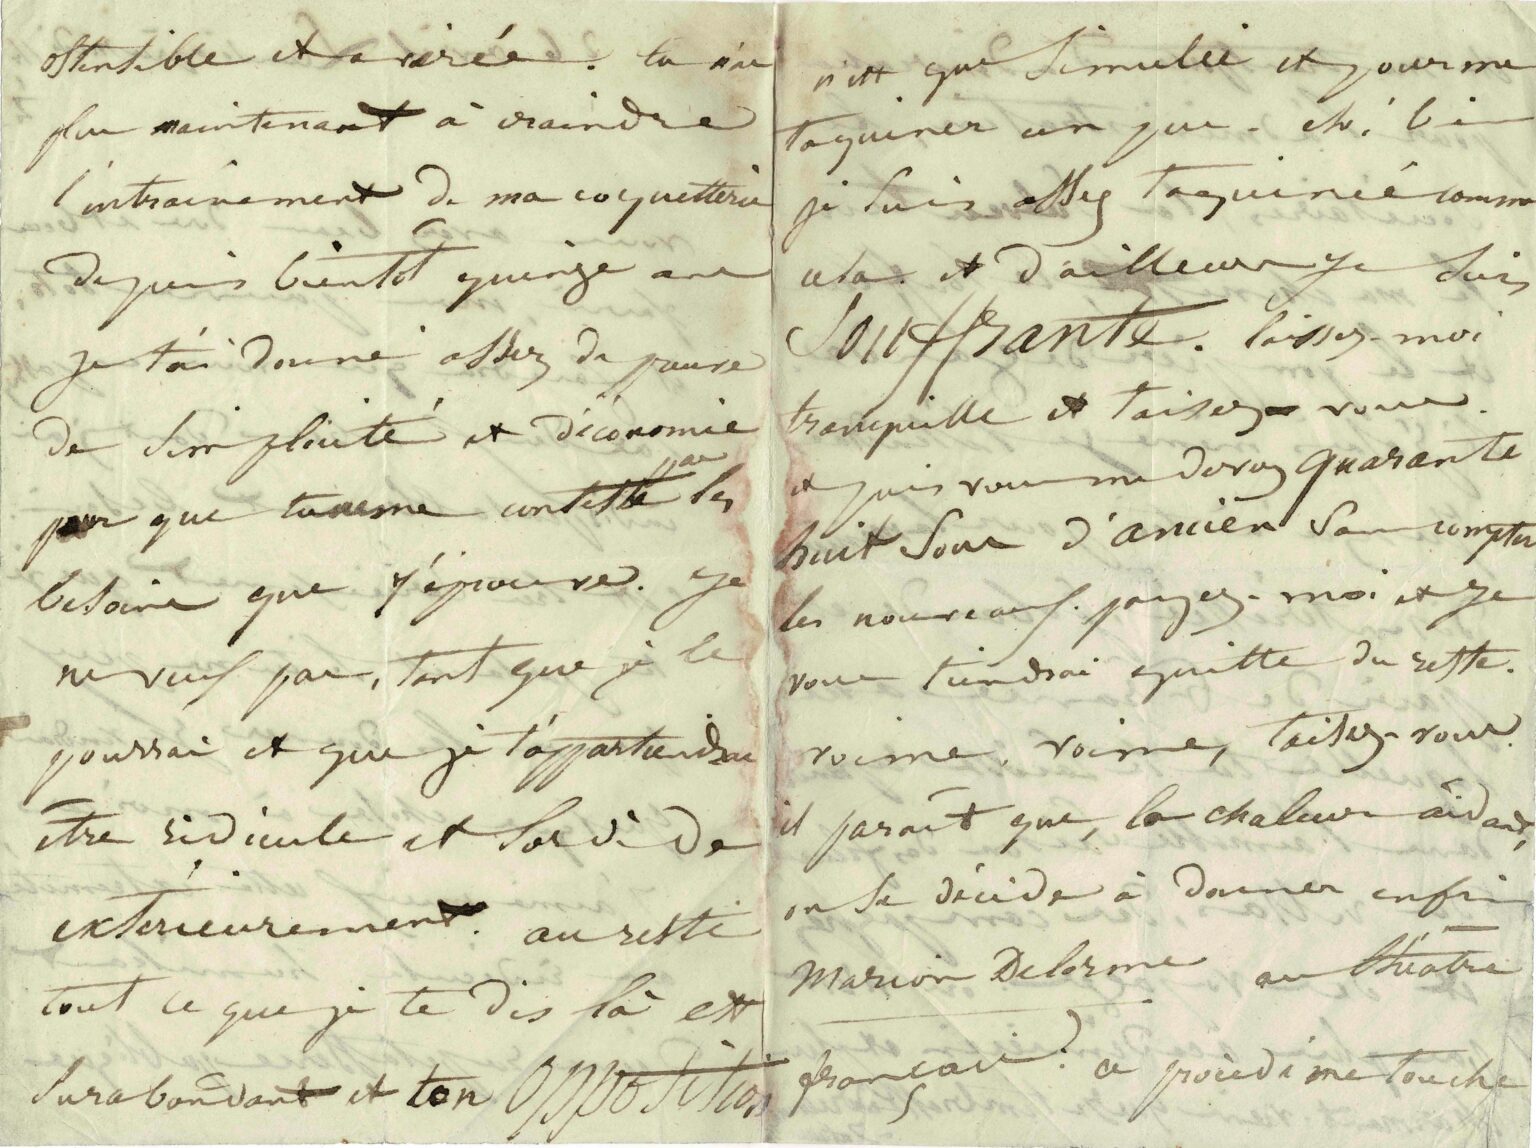 ostensible et avérée. tu n'as
plus maintenant à craindre
l'entrainement de ma coquetterie
depuis bientot quinze ans
je t'ai donné assez de preuves
de simplicité et d'économie
pour que tu ne me contestes pas les
besoins que j'éprouve. je
ne veux pas, tant que je le
pourrai et que je t'appartiendrai
être ridicule et sordide
extérieurement. au reste
tout ce que je te dis là est
surabondant et ton opposition
n'est que simulée et pour me
taquiner un peu. eh! bien
je suis assez taquinée comme
cela. et d'ailleurs je suis
Souffrante. laissez-moi
tranquille et taisez-vous.
et puis vous me devez quarante
huit sous d'ancien sans compter
les nouveaux. payez-moi et je
vous tiendrai quitte du reste.
voime, voime, taisez-vous.
il paraît que, la chaleur aidant,
on se décide à donner enfin
Marion Delorme au théâtre
français? ce procédé me touche